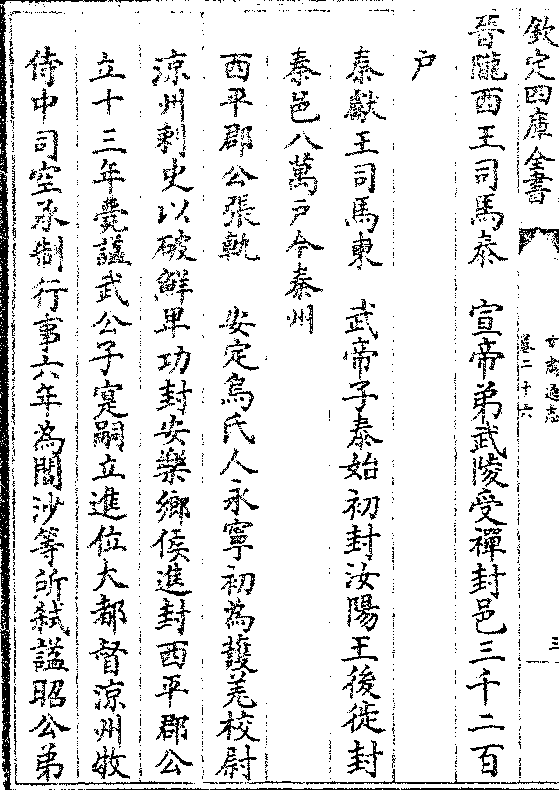 欽定四庫全書
甘肅通志
卷二十六
三
晉隴西王司馬泰　宣帝弟武陵受禪封邑三千二百
戸
秦獻王司馬柬　武帝子泰始初封汝陽王後徙封
秦邑八萬戸今秦州
西平郡公張軌　安定烏氏人永寧初為護羌校尉
涼州刺史以破鮮卑功封安樂鄉侯進封西平郡公
立十三年薨諡武公子寔嗣立進位大都督涼州牧
侍中司空承制行事六年為閻沙等所弑諡昭公弟